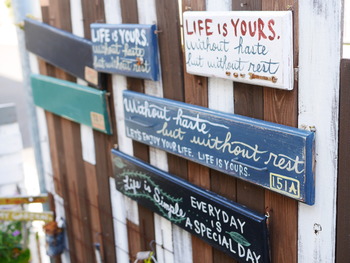 LIFE IS YOURS.
Without haste
but without rest
LIFE IS YOURS.
Without haste
but without rest
Without haste
but without rest
LET'S ENJOY YOUR LIFE. LIFE IS YOURS.
151A
Life is Simple
EVERYDAY
IS
A SPECIAL DAY